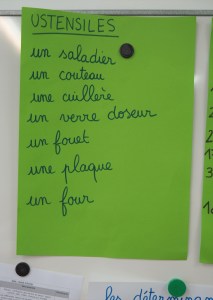 USTENSILES
un saladier
un couteau
une cuillère
un verre doseur
un fouet
une plaque
un four
les déterminan